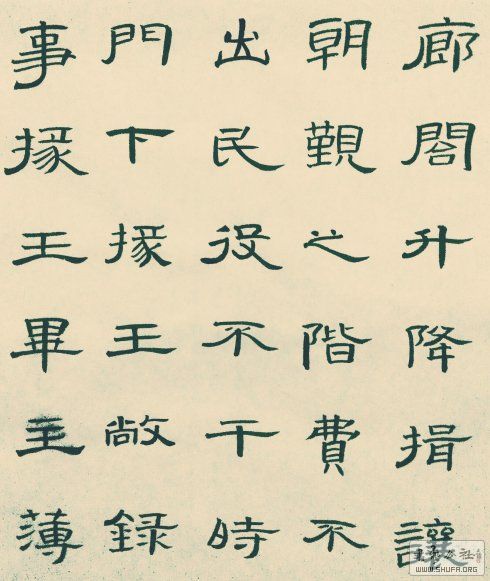 廊閣升降揖讓
朝覲之階費不
出民役不干時
門下掾王敞錄
事掾王畢主薄
WWW.SHUFA.ORG